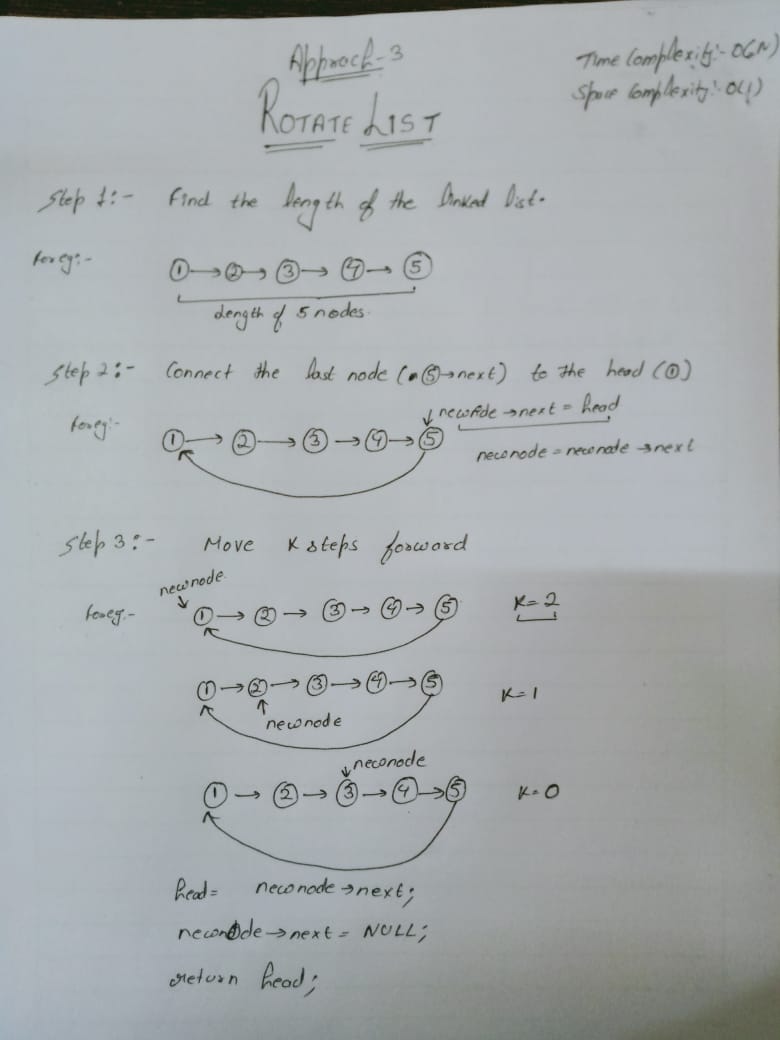 Approch-3
Time Complexity:- O(N)
Space Complexity:- O(1)
ROTATE LIST
Step 1:- Find the length of the linked list.
for eg:- 1 → 2 → 3 → 4 → 5
Length of 5 nodes.
Step 2:- Connect the last node (5→next) to the head (1)
newnode →next = head
for eg:- 1 → 2 → 3 → 4 → 5
newnode = newnode →next
Step 3:- Move K steps forward
newnode
for eg.- 1 → 2 → 3 → 4 → 5 K= 2
1 → 2 → 3 → 4 → 5 K= 1
newnode
newnode
1 → 2 → 3 → 4 → 5 K= 0
head= newnode →next;
newnode →next = NULL;
return head;